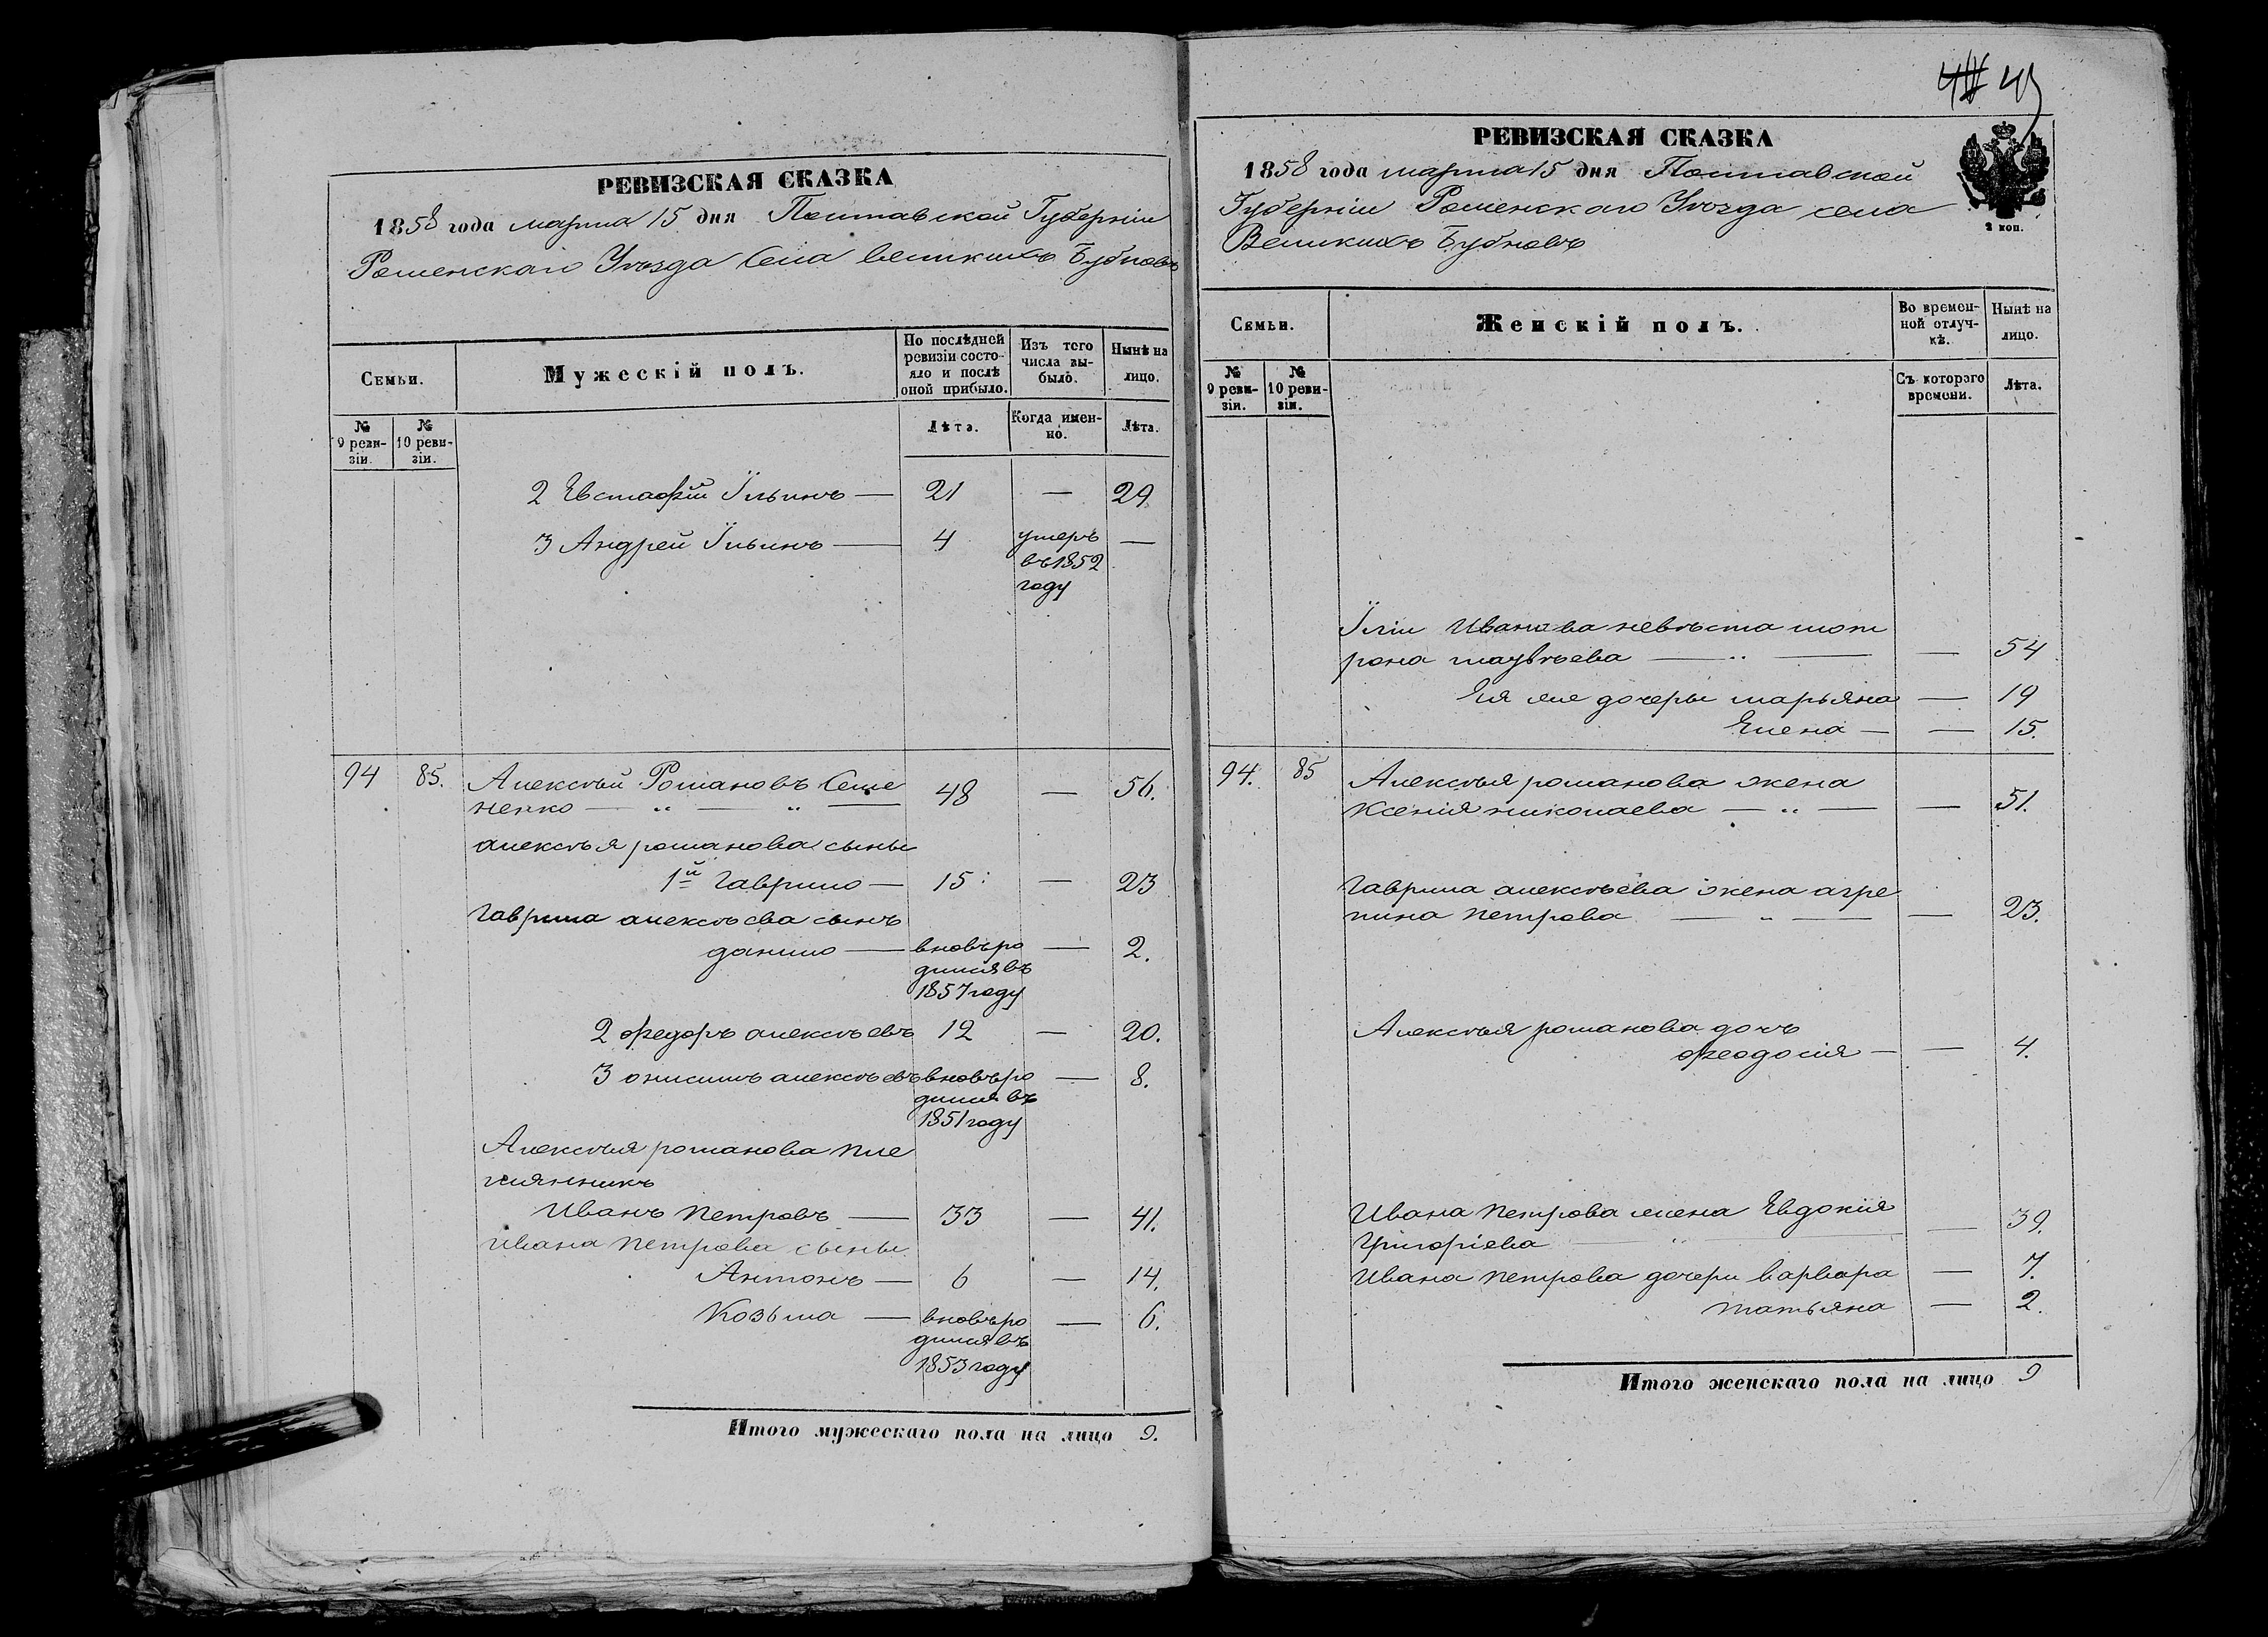 РЕВИЗСКАЯ СКАЗКА
1858 года марта 15 дня Полтавской Губерніи
Роменскаго Уѣзда Села великихъ Бубновъ
Семьи.
Мужескій полъ.
По послѣдней ревизіи состояло и послѣ оной прибыло.
Изъ того числа выбыло.
Нынѣ на лицо.
№ 9 ревизіи.
№ 10 ревизіи.
Лѣта.
Когда именно.
Лѣта.
2 Евстафій Ильинъ — 21 — 29
3 Андрей Ильинъ — 4 умеръ —
въ 1852
году
94 85. Алексѣй Романовъ Семе
ненко — " — " — 48 — 56.
алексѣя романова сыны
1й Гаврило — 15: — 23
Гаврила алексѣева сынъ
данило — вновь ро — 2.
дился въ
1857 году
2 федоръ алексѣевъ 12 — 20.
3 онисимъ алексѣевъ вновь ро — 8.
дился въ
1851 году
Алексѣя романова пле
мянникъ
Иванъ петровъ — 33 — 41.
ивана петрова сыны
Антонъ — 6 — 14.
Козьма — вновь ро — 6.
дился въ
1853 году
Итого мужескаго пола на лицо 9.
43
РЕВИЗСКАЯ СКАЗКА
1858 года марта 15 дня Полтавской
Губерніи Роменскаго Уѣзда села
Великихъ Бубновъ
2 коп.
Семьи.
Женскій полъ.
Во временной отлучкѣ.
Нынѣ на лицо.
№ 9 ревизіи.
№ 10 ревизіи.
Съ котораго времени.
Лѣта.
Иліи Иванова невѣста мот
рона — " — — 54
Ея же дочеры марьяна — 19
Елена — — 15.
94. 85 Алексѣя романова жена
Ксенія николаева — " — — 51.
Гаврила алексѣева жена агре
пина петрова — " — — 23.
Алексѣя романова дочь
феодосія — — 4.
Ивана петрова жена Евдокія
Григоріева — " — — 39.
Ивана петрова дочери варвара — 7.
татьяна — 2.
Итого женскаго пола на лицо 9